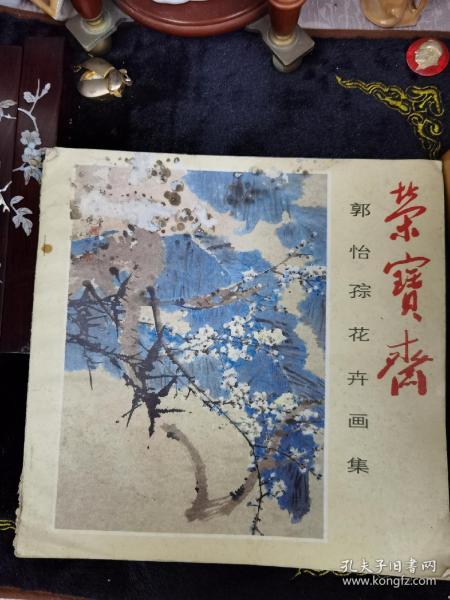 荣寳斋
郭怡孮花卉画集
孔夫子旧书网
www.kongfz.com